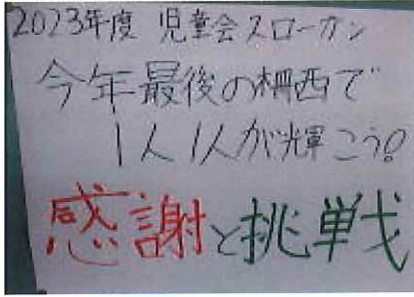 2023年度 児童会スローガン
今年最後の柵西で
1人1人が輝こう!
感謝と挑戦